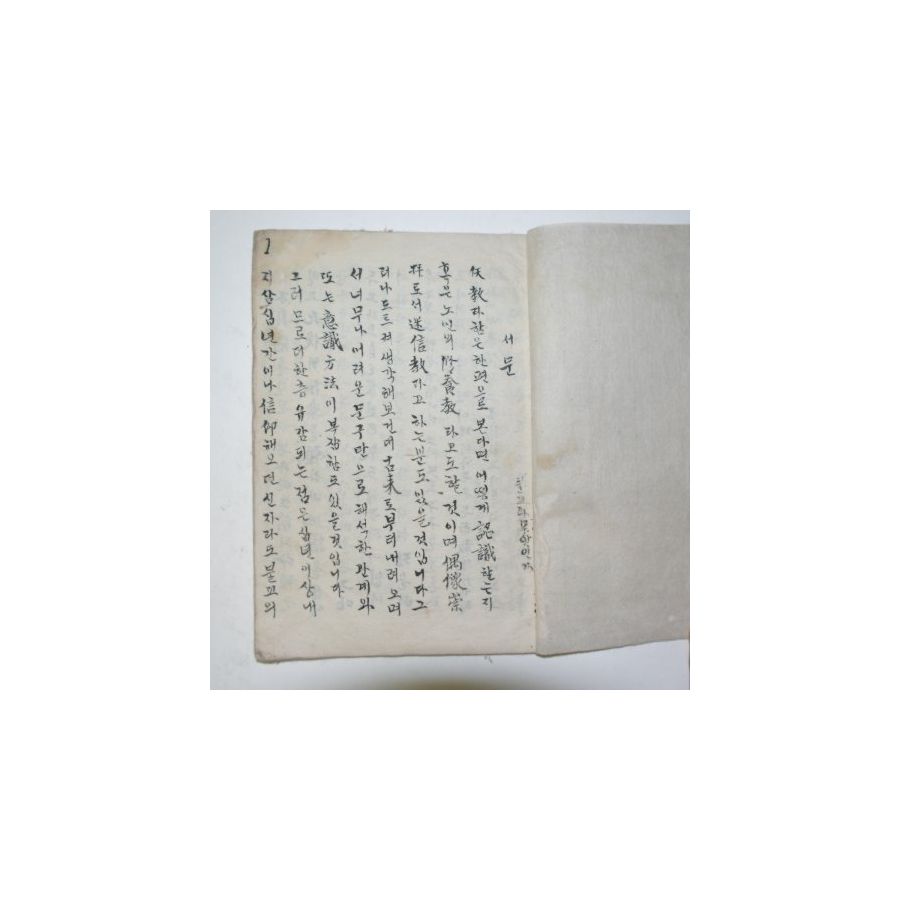 서문
불교라 무엇인가
佚教라 함은 한편으로 본다면 어떻게 認識 할는지
혹은 노인의 修養教 라고도 할 것이며 偶像崇
拜로서 迷信教라고 하는 분도 있을 것입니다 그
러나 드드려 생각해 보건대 古来로부터 내려 오며
서 너무나 어려운 문구만으로 해석한 관계와
또는 意識 方法이 복잡함도 있을 것입니다
그러므로 더 한층 유감되는 점은 십년 이상 내
지 삼십년간이나 信仰해 오던 신자라도 불교의